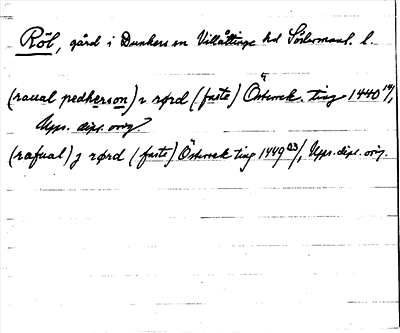 Röl, gård i Dunkers sn Villåttinge hd Södermanl. l.
(raual pedherson) i rørd (faste) Österrek. ting 1440 19/,
Upps. dipl. orig.
(rafual) j rørd (faste) Österrek ting 1449 23/, Upps. dipl. orig.